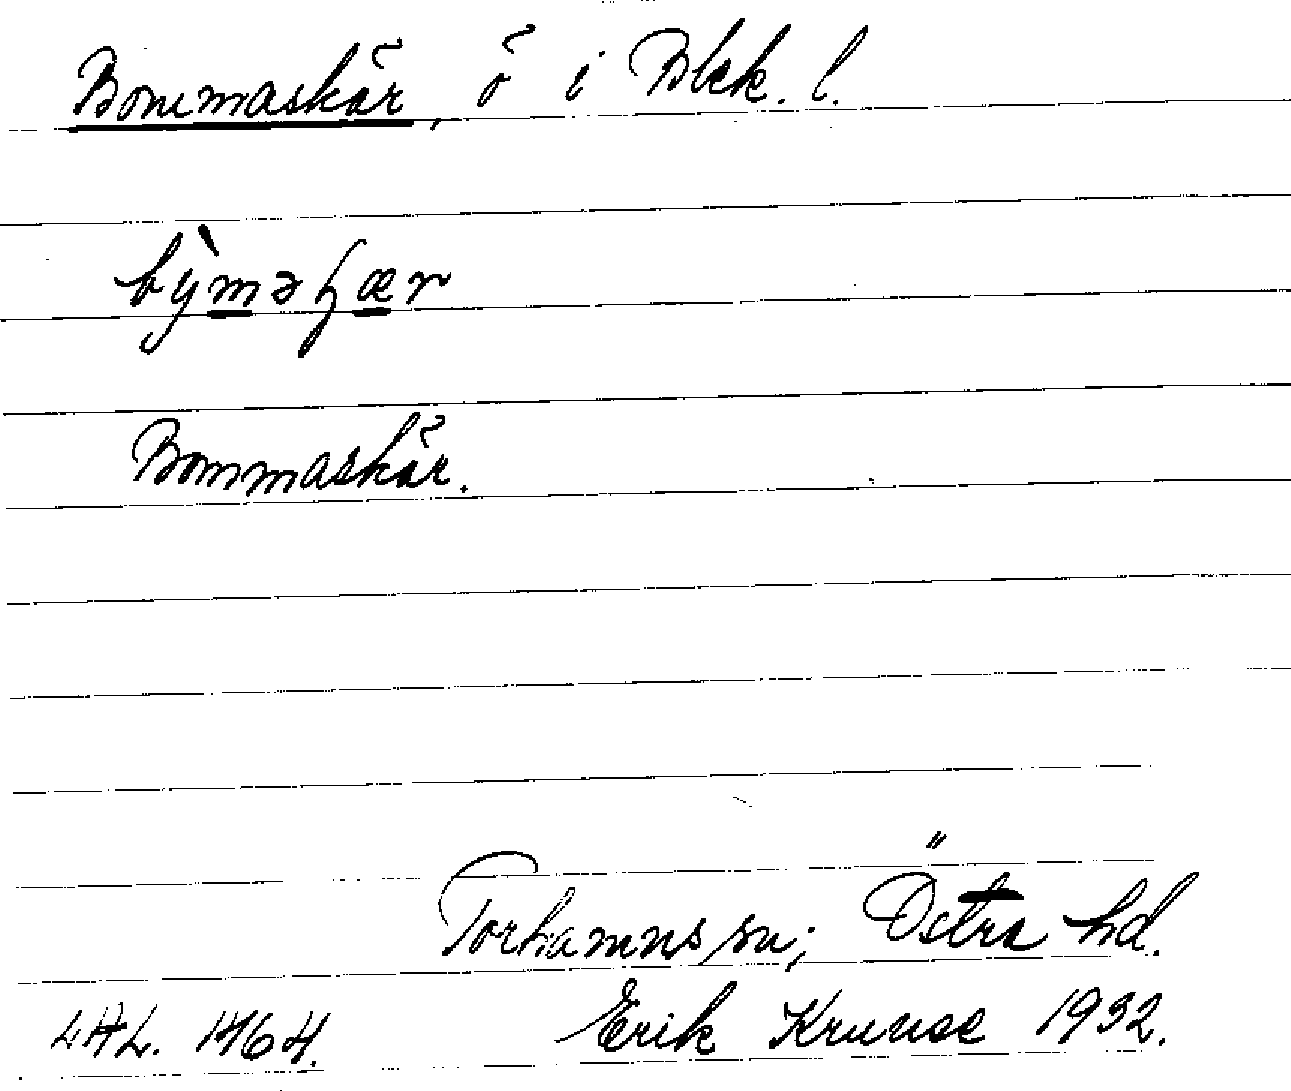 Bommaskär, ö i Blek. l.
bỳməɧær
Bommaskär.
Torhamns sn; Östra hd.
LAL. 1464. Erik Kruuse 1932.